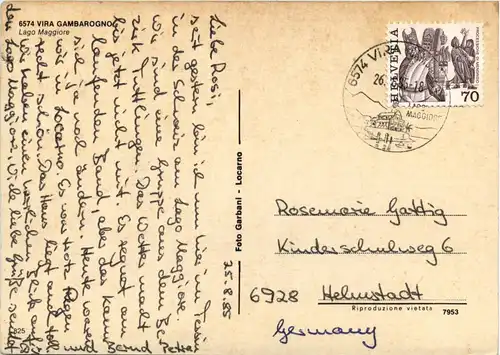 6574 VIRA GAMBAROGNO
Lago Maggiore
Liebe Rosi,
seit gestern bin ich nun hier im Tessin
in der Schweiz am Lago Maggiore.
Wir sind eine Gruppe aus dem Be-
zirk Tuttlingen. Das Wetter macht
bis jetzt nicht mit. Es regnet am
laufenden Band, aber das kann
sich ja noch ändern. Heute waren
wir in Locarno. Es war trotz Regen
recht schön. Das Haus liegt und toll
wir haben einen herrlichen Blick auf
den Lago Maggiore. Viele liebe Grüße sendet
Bernd
25.8.85
Foto Garbani - Locarno
HELVETIA
70
6574 VIRA
26.
MAGGIORE
Rosemarie Gattig
Kinderschulweg 6
6928 Helmstadt
Germany
Riproduzione vietata
7953
825